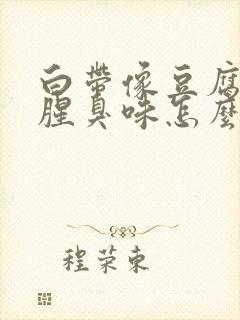 白帶像豆腐
腥臭味怎麼
程荣東